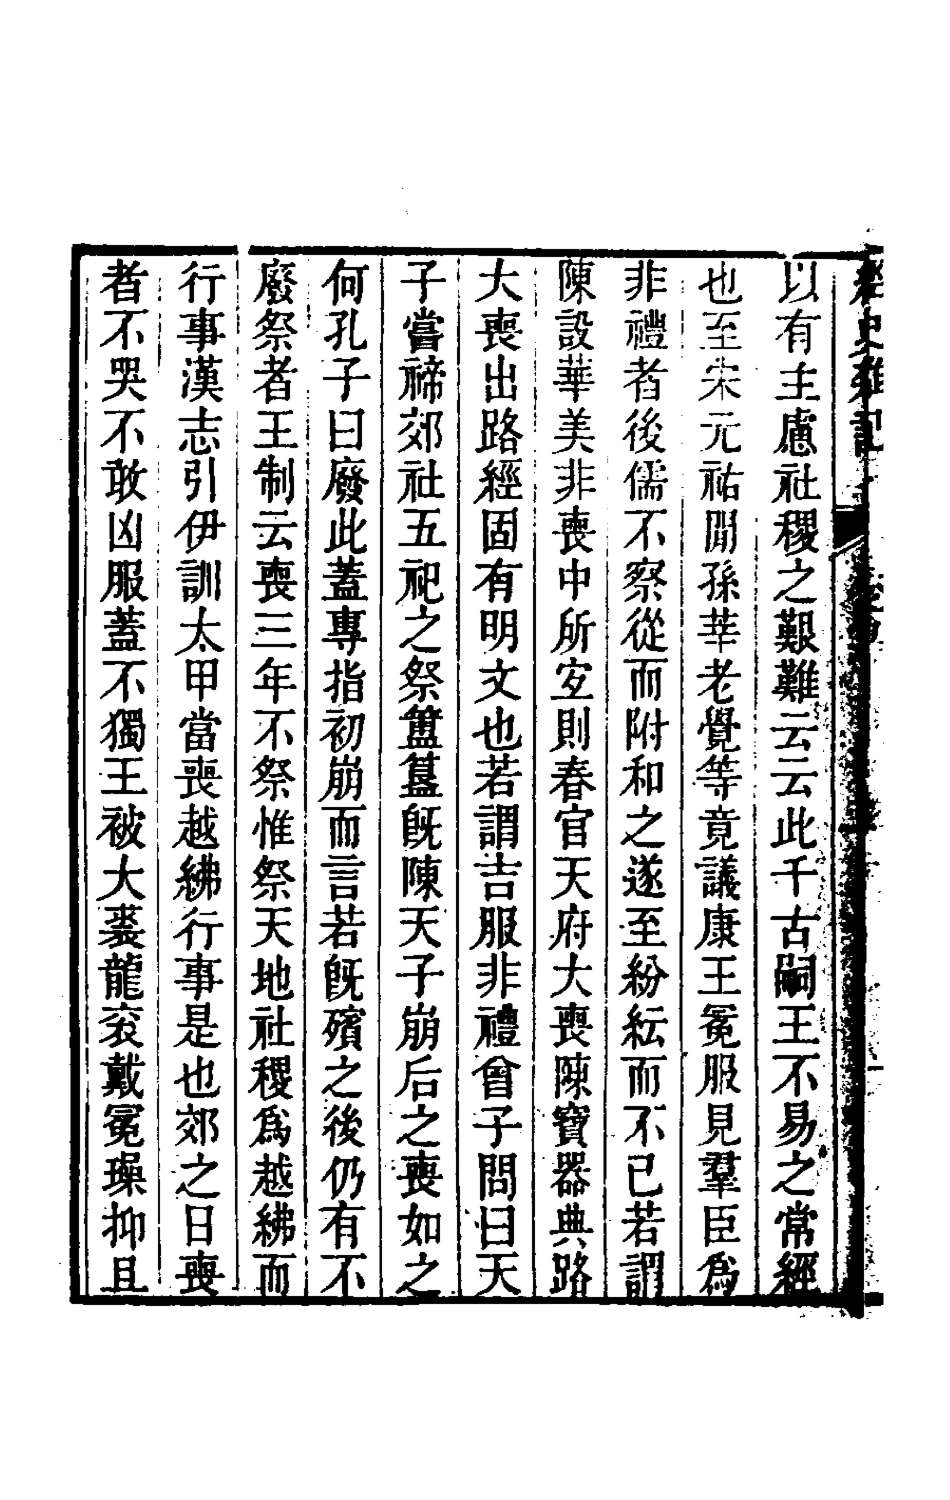 經史雜記
以有主慮社稷之艱難云云此千古嗣王不易之常經
也至宋元祐間孫莘老覺等竟議康王冕服見羣臣爲
非禮者後儒不察從而附和之遂至紛紜而不已若謂
陳設華美非喪中所宐則春官天府大喪陳寶器典路
大喪出路經固有明文也若謂吉服非禮曾子問曰天
子嘗禘郊社五祀之祭簠簋旣陳天子崩后之喪如之
何孔子曰廢此蓋專指初崩而言若旣殯之後仍有不
廢祭者王制云喪三年不祭惟祭天地社稷爲越紼而
行事漢志引伊訓太甲當喪越紼行事是也郊之日喪
者不哭不敢凶服蓋不獨王被大裘龍衮戴冕璪抑且